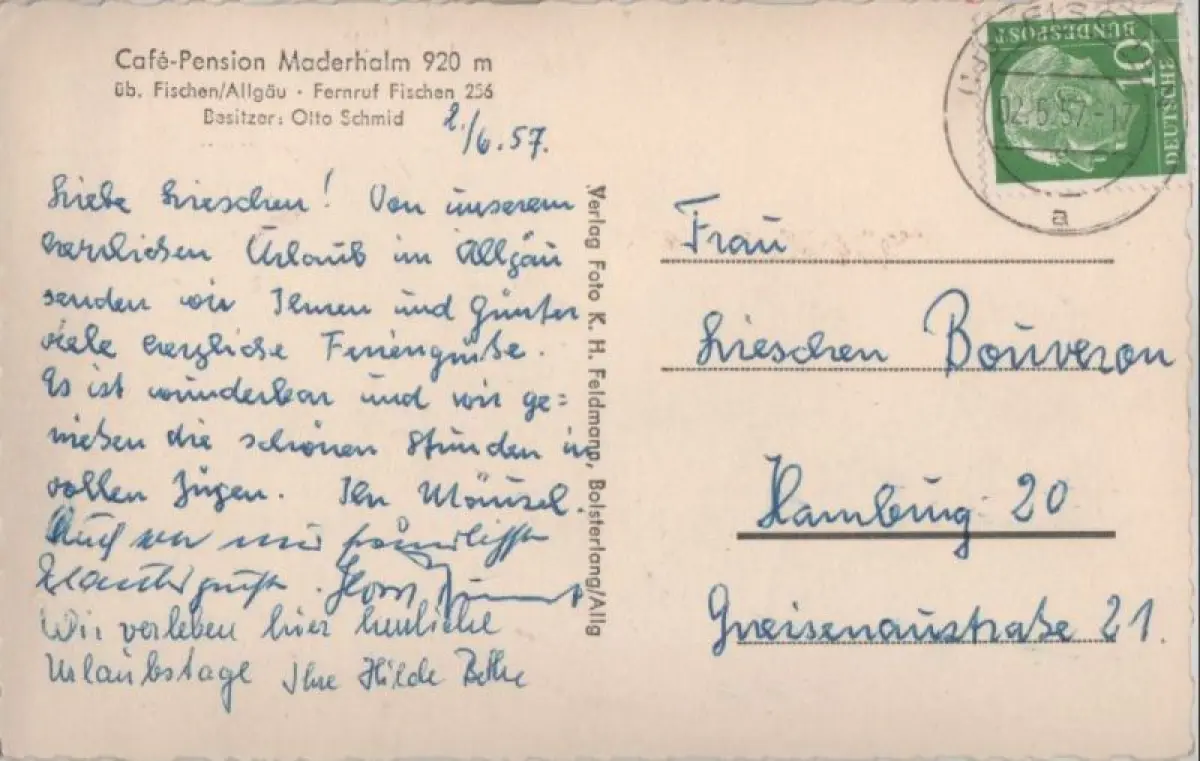 Café-Pension Maderhalm 920 m
üb. Fischen/Allgäu · Fernruf Fischen 256
Besitzer: Otto Schmid
2./6.57.
Liebe Lieschen! Von unserem
herrlichen Urlaub im Allgäu
senden wir Ihnen und Günter
viele herzliche Feriengrüße.
Es ist wunderbar und wir ge=
nießen die schönen Stunden in
vollen Zügen. Ihr Mäusel.
Auch von mir
Wir verleben hier herrliche
Urlaubstage Ihre Hilde Bethe
Verlag Foto K. H. Feldmann, Bolsterlang/Allg
DEUTSCHE
BUNDESPOST
10
02.6.57.-17
a
Frau
Lieschen Bouveron
Hamburg 20
Gneisenaustraße 21.